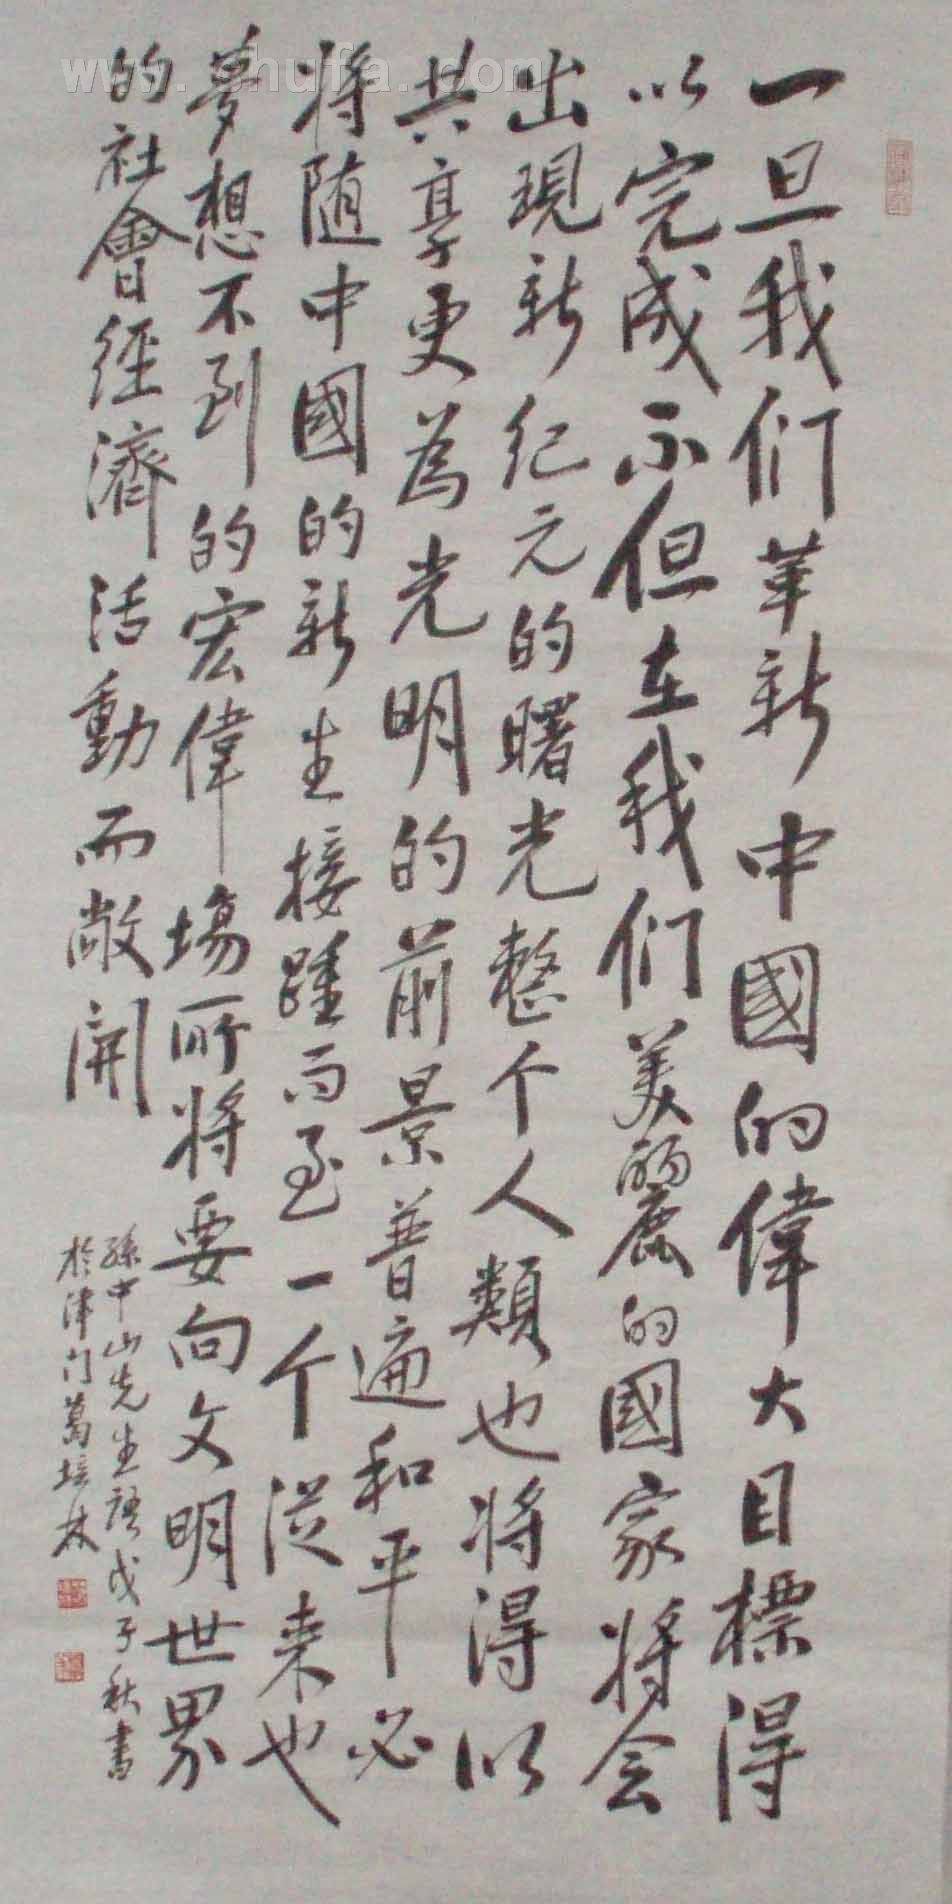 www.shufa.com
一旦我们革新中國的偉大目標得
以完成不但在我们美麗的國家将会
出現新纪元的曙光整个人類也将得以
共享更為光明的前景普遍和平必
将随中國的新生接踵而至一个從来也
夢想不到的宏偉場所将要向文明世界
的社會經濟活動而敞開
孫中山先生語戊子秋書
於津门葛培林